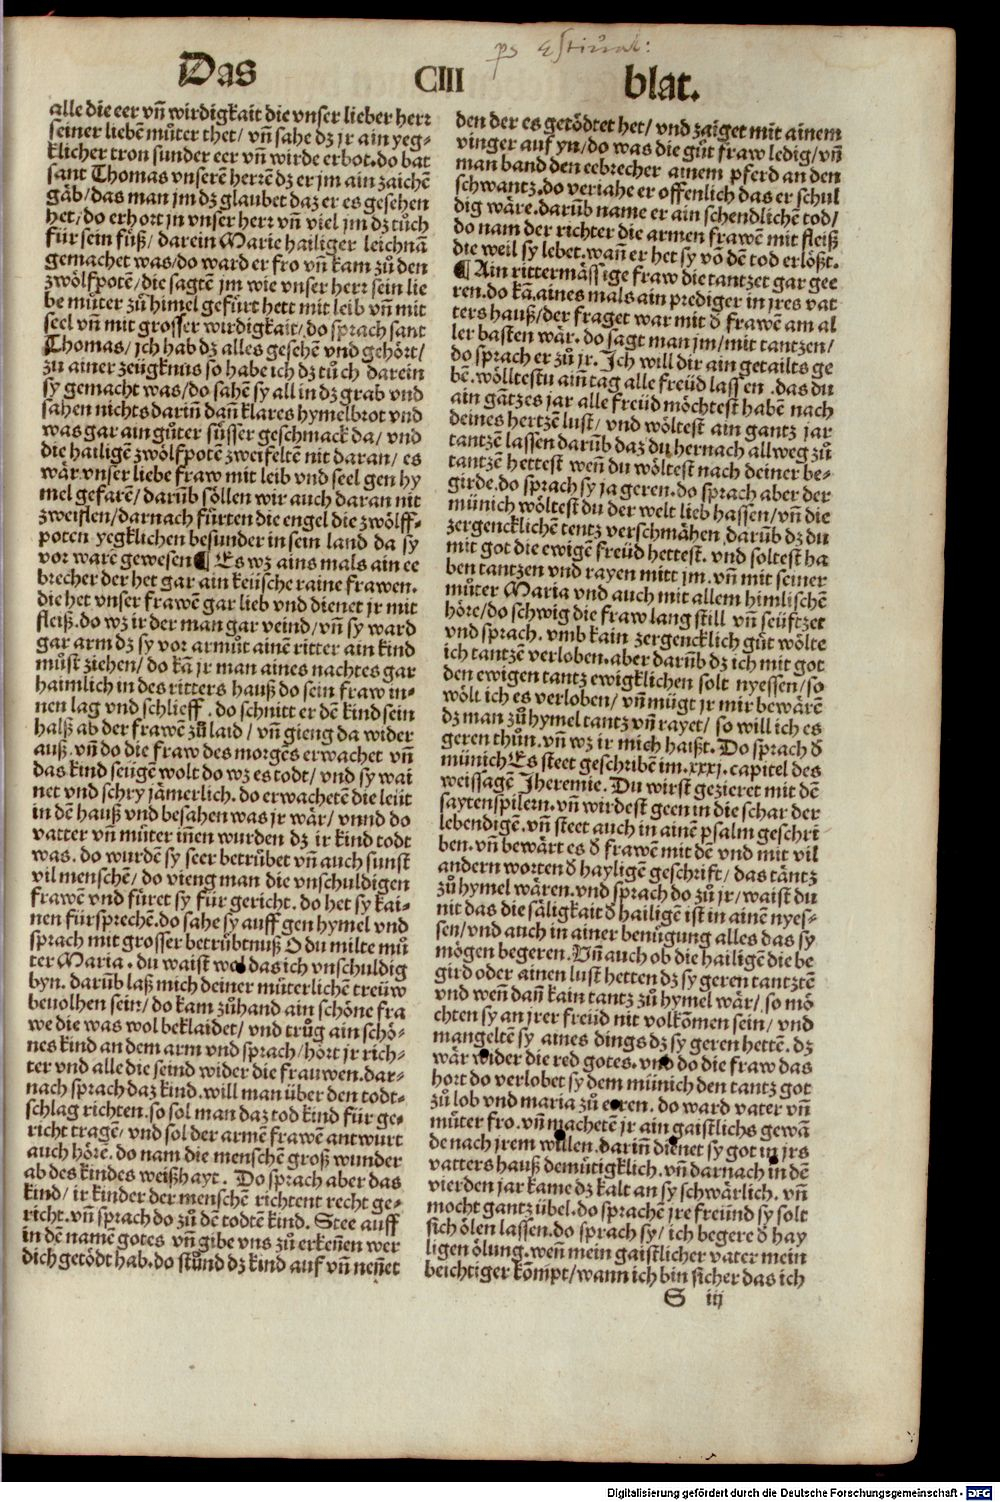 ps Estiual:
Das CIII blat.
alle die eer vñ wirdigkait die vnser lieber herr
seiner liebẽ můter thet/ vñ sahe dz jr ain yeg⸗
klicher tron sunder eer vñ wirde erbot. do bat
sant Thomas vnserẽ herrẽ dz er jm ain zaichẽ
gäb/ das man jm dz glaubet daz er es gesehen
het/ do erhort jn vnser herr vñ viel jm dz tůch
für sein füß/ darein Marie hailiger leichnã
gemachet was/ do ward er fro vñ kam zů den
zwölfpotẽ/ die sagtẽ jm wie vnser herr sein lie
be můter zů himel gefürt hett mit leib vñ mit
seel vñ mit grosser wirdigkait/ do sprach sant
Thomas/ ich hab dz alles gesehẽ vnd gehört/
zů ainer zeügknus so habe ich dz tůch darein
sy gemacht was/ do sahẽ sy all in dz grab vnd
sahen nichts dariñ dañ klares hymelbrot vnd
was gar ain gůter süsser geschmack da/ vnd
die hailigẽ zwölfpotẽ zweifeltẽ nit daran/ es
wär vnser liebe fraw mit leib vnd seel gen hy
mel gefarẽ/ darũb söllen wir auch daran nit
zweiflen/ darnach fürten die engel die zwölff⸗
poten yegklichen besunder in sein land da sy
vor warẽ gewesen ¶ Es wz ains mals ain ee
brecher der het gar ain keüsche raine frawen.
die het vnser frawẽ gar lieb vnd dienet jr mit
fleiß. do wz ir der man gar veind/ vñ sy ward
gar arm dz sy vor armůt ainẽ ritter ain kind
můst ziehen/ do kã jr man aines nachtes gar
haimlich in des ritters hauß do sein fraw in⸗
nen lag vnd schlieff. do schnitt er dẽ kind sein
halß ab der frawẽ zů laid/ vñ gieng da wider
auß. vñ do die fraw des morgẽs erwachet vñ
das kind seügẽ wolt do wz es todt/ vnd sy wai
net vnd schry jämerlich. do erwachetẽ die leüt
in dẽ hauß vnd besahen was jr wär/ vnnd do
vatter vñ můter iñen wurden dz ir kind todt
was. do wurdẽ sy seer betrübet vñ auch sunst
vil menschẽ/ do vieng man die vnschuldigen
frawẽ vnd füret sy für gericht. do het sy kai⸗
nen fürsprechẽ. do sahe sy auff gen hymel vnd
sprach mit grosser betrübtnuß O du milte mů
ter Maria. du waist wol das ich vnschuldig
byn. darũb laß mich deiner můterlichẽ treüw
beuolhen sein/ do kam zůhand ain schöne fra
we die was wol beklaidet/ vnd trůg ain schö⸗
nes kind an dem arm vnd sprach/ hört jr rich⸗
ter vnd alle die seind wider die frauwen. dar⸗
nach sprach daz kind. will man über den todt⸗
schlag richten. so sol man daz tod kind für ge⸗
richt tragẽ/ vnd sol der armẽ frawẽ antwurt
auch hörẽ. do nam die menschẽ groß wunder
ab des kindes weißhayt. Do sprach aber das
kind/ ir kinder der menschẽ richtent recht ge⸗
richt. vñ sprach do zů dẽ todtẽ kind. Stee auff
in dẽ namẽ gotes vñ gibe vns zů erkeñen wer
dich getödt hab. do stůnd dz kind auf vñ neñet
den der es getödtet het/ vnd zaiget mit ainem
vinger auf yn/ do was die gůt fraw ledig/ vñ
man band den eebrecher ainem pferd an den
schwantz. do veriahe er offenlich das er schul
dig wäre. darũb name er ain schendlichẽ tod/
do nam der richter die armen frawẽ mit fleiß
die weil sy lebet. wañ er het sy võ dẽ tod erlößt.
¶ Ain rittermässige fraw die tantzet gar gee
ren. do kã. aines mals ain prediger in jres vat
ters hauß/ der fraget war mit d̕ frawẽ am al
ler basten wär. do sagt man jm/ mit tantzen/
do sprach er zů jr. Ich will dir ain getailts ge
bẽ. wölltestu aiñ tag alle freüd lassen. das du
ain gãtzes jar alle freüd möchtest habẽ nach
deines hertzẽ lust/ vnd wöltest ain gantz jar
tantzẽ lassen darũb daz du hernach allweg zů
tantzẽ hettest weñ du wöltest nach deiner be⸗
girde. do sprach sy ja geren. do sprach aber der
münich wöltest du der welt lieb hassen/ vñ die
zergencklichẽ tentz verschmähen darũb dz du
mit got die ewigẽ freüd hettest. vnd soltest ha
ben tantzen vnd rayen mitt jm. vñ mit seiner
můter Maria vnd auch mit allem himlischẽ
höre/ do schwig die fraw lang still vñ seüftzet
vnd sprach. vmb kain zergencklich gůt wölte
ich tantzẽ verloben. aber darũb dz ich mit got
den ewigen tantz ewigklichen solt nyessen/ so
wölt ich es verloben/ vñ mügt jr mir bewärẽ
dz man zů hymel tantz vñ rayet/ so will ich es
geren thůn. vñ wz ir mich haißt. Do sprach d̕
münich Es steet geschribẽ im .xxxj. capitel des
weissagẽ Jheremie. Du wirst gezieret mit dẽ
saytenspilern. vñ wirdest geen in die schar der
lebendigẽ. vñ steet auch in ainẽ psalm geschri
ben. vñ bewärt es d̕ frawẽ mit dẽ vnd mit vil
andern worten d̕ hayligẽ geschrift/ das täntz
zů hymel wären. vnd sprach do zů jr/ waist du
nit das die säligkait d̕ hailigẽ ist in ainẽ nyes⸗
sen/ vnd auch in ainer benügung alles das sy
mögen begeren. Vñ auch ob die hailigẽ die be
gird oder ainen lust hetten dz sy geren tantztẽ
vnd weñ dañ kain tantz zů hymel wär/ so mö
chten sy an jrer freüd nit volkõmen sein/ vnd
mangeltẽ sy aines dings dz sy geren hettẽ. dz
wär wider die red gotes. vnd do die fraw das
hort do verlobet sy dem münich den tantz got
zů lob vnd maria zů eeren. do ward vater vñ
můter fro. vñ machetẽ jr ain gaistlichs gewã
de nach jrem willen. dariñ dienet sy got in jrs
vatters hauß demütigklich. vñ darnach in dẽ
vierden jar kame dz kalt an sy schwärlich. vñ
mocht gantz übel. do sprachẽ jre freünd sy solt
sich ölen lassen. do sprach sy/ ich begere d̕ hay
ligen ölung. weñ mein gaistlicher vater mein
beichtiger kõmpt/ wann ich bin sicher das ich
S iij
Digitalisierung gefördert durch die Deutsche Forschungsgemeinschaft - DFG